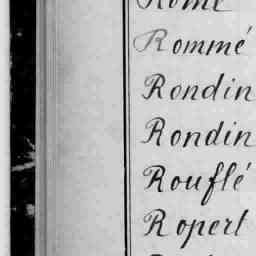 Rome
Rommé
Rondin
Rondin
Rouflé
Ropert